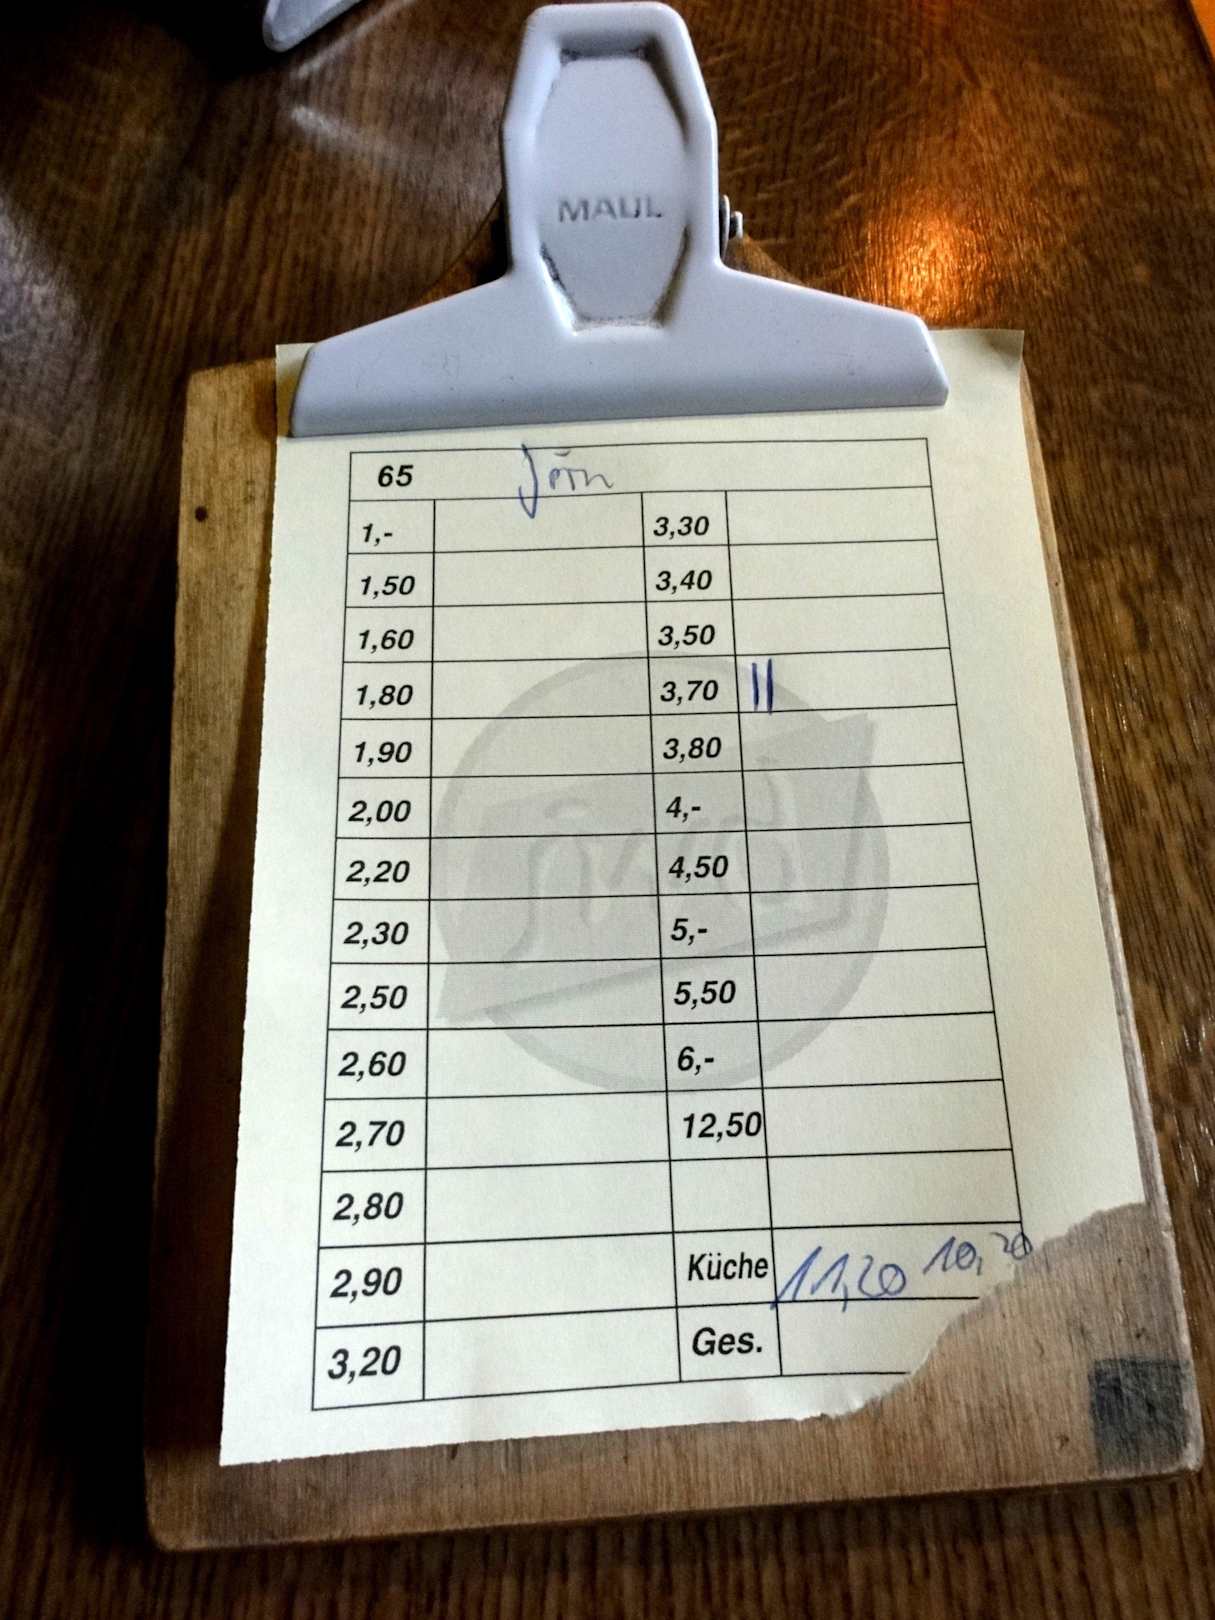 MAUL
65 Jörn
1,- 3,30
1,50 3,40
1,60 3,50
1,80 3,70 ||
1,90 3,80
2,00 4,-
2,20 4,50
2,30 5,-
2,50 5,50
2,60 6,-
2,70 12,50
2,80
2,90 Küche 11,20 10,20
3,20 Ges.